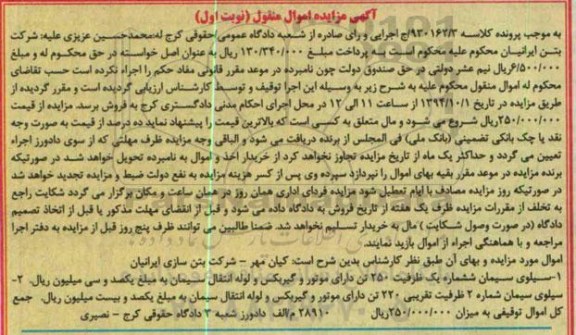 آگهی مزایده اموال منقول (نوبت اول)
به موجب پرونده کلاسه ۹۳۰۱۶۲/۳/ج اجرایی و رای صادره از شعبه دادگاه عمومی/حقوقی کرج له:محمدحسین عزیزی علیه: شرکت
بتن ایرانیان محکوم علیه محکوم است به پرداخت مبلغ ۱۳۰/۳۴۰/۰۰۰ ریال به عنوان اصل خواسته در حق محکوم له و مبلغ
۶/۵۰۰/۰۰۰ریال نیم عشر دولتی در حق صندوق دولت چون نامبرده در موعد مقرر قانونی مفاد حکم را اجراء نکرده است حسب تقاضای
محکوم له اموال منقول محکوم علیه به شرح زیر به وسیله این اجرا توقیف و توسط کارشناس ارزیابی گردیده است و مقرر گردیده از
طریق مزایده در تاریخ ۱۳۹۴/۱۰/۱ از ساعت ۱۱ الی ۱۲ در محل اجرای احکام مدنی دادگستری کرج به فروش برسد. مزایده از قیمت
۲۵۰/۰۰۰/۰۰۰ریال شروع می شود و مال متعلق به کسی است که بالاترین قیمت را پیشنهاد نماید ده درصد از قیمت به صورت وجه
نقد یا چک بانکی تضمینی (بانک ملی) فی المجلس از برنده دریافت می شود و الباقی وجه مزایده ظرف مهلتی که از سوی دادورز اجراء
تعیین می گردد و حداکثر یک ماه از تاریخ مزایده تجاوز نخواهد کرد از خریدار اخذ و اموال به نامبرده تحویل خواهد شد در صورتیکه
برنده مزایده در موعد مقرر بقیه بهای اموال را نپردازد سپرده وی پس از کسر هزینه مزایده به نفع دولت ضبط و مزایده تجدید خواهد شد
در صورتیکه روز مزایده مصادف با ایام تعطیل شود مزایده فردای اداری همان روز در همان ساعت و مکان برگزار می گردد شکایت راجع
به تخلف از مقررات مزایده ظرف یک هفته از تاریخ فروش به دادگاه داده می شود و قبل از انقضای مهلت مذکور یا قبل از اتخاذ تصمیم
دادگاه (در صورت وصول شکایت) مال به خریدار تسلیم نخواهد شد. ضمنا طالبین می توانند ظرف پنج روز قبل از مزایده به دفتر اجرا
مراجعه و با هماهنگی اجراء از اموال بازدید نمایند.
اموال مورد مزایده و بهای آن طبق نظر کارشناس بدین شرح است: کیان مهر - شرکت بتن سازی ایرانیان
۱-سیلوی سیمان ششماره یک ظرفیت ۲۵۰ تن دارای موتور و گیربکس و لوله انتقال سیمان به مبلغ یکصد و سی میلیون ریال. ۲-
سیلوی سیمان شماره ۲ ظرفیت تقریبی ۲۲۰ تن دارای موتور و گیربکس و لوله انتقال سیمان به مبلغ یکصد و بیست میلیون ریال. جمع
کل اموال توقیفی به میزان ۲۵۰/۰۰۰/۰۰۰ریال ۲۸۹۱۰ م/الف دادورز شعبه ۳ دادگاه حقوقی کرج - نصیری